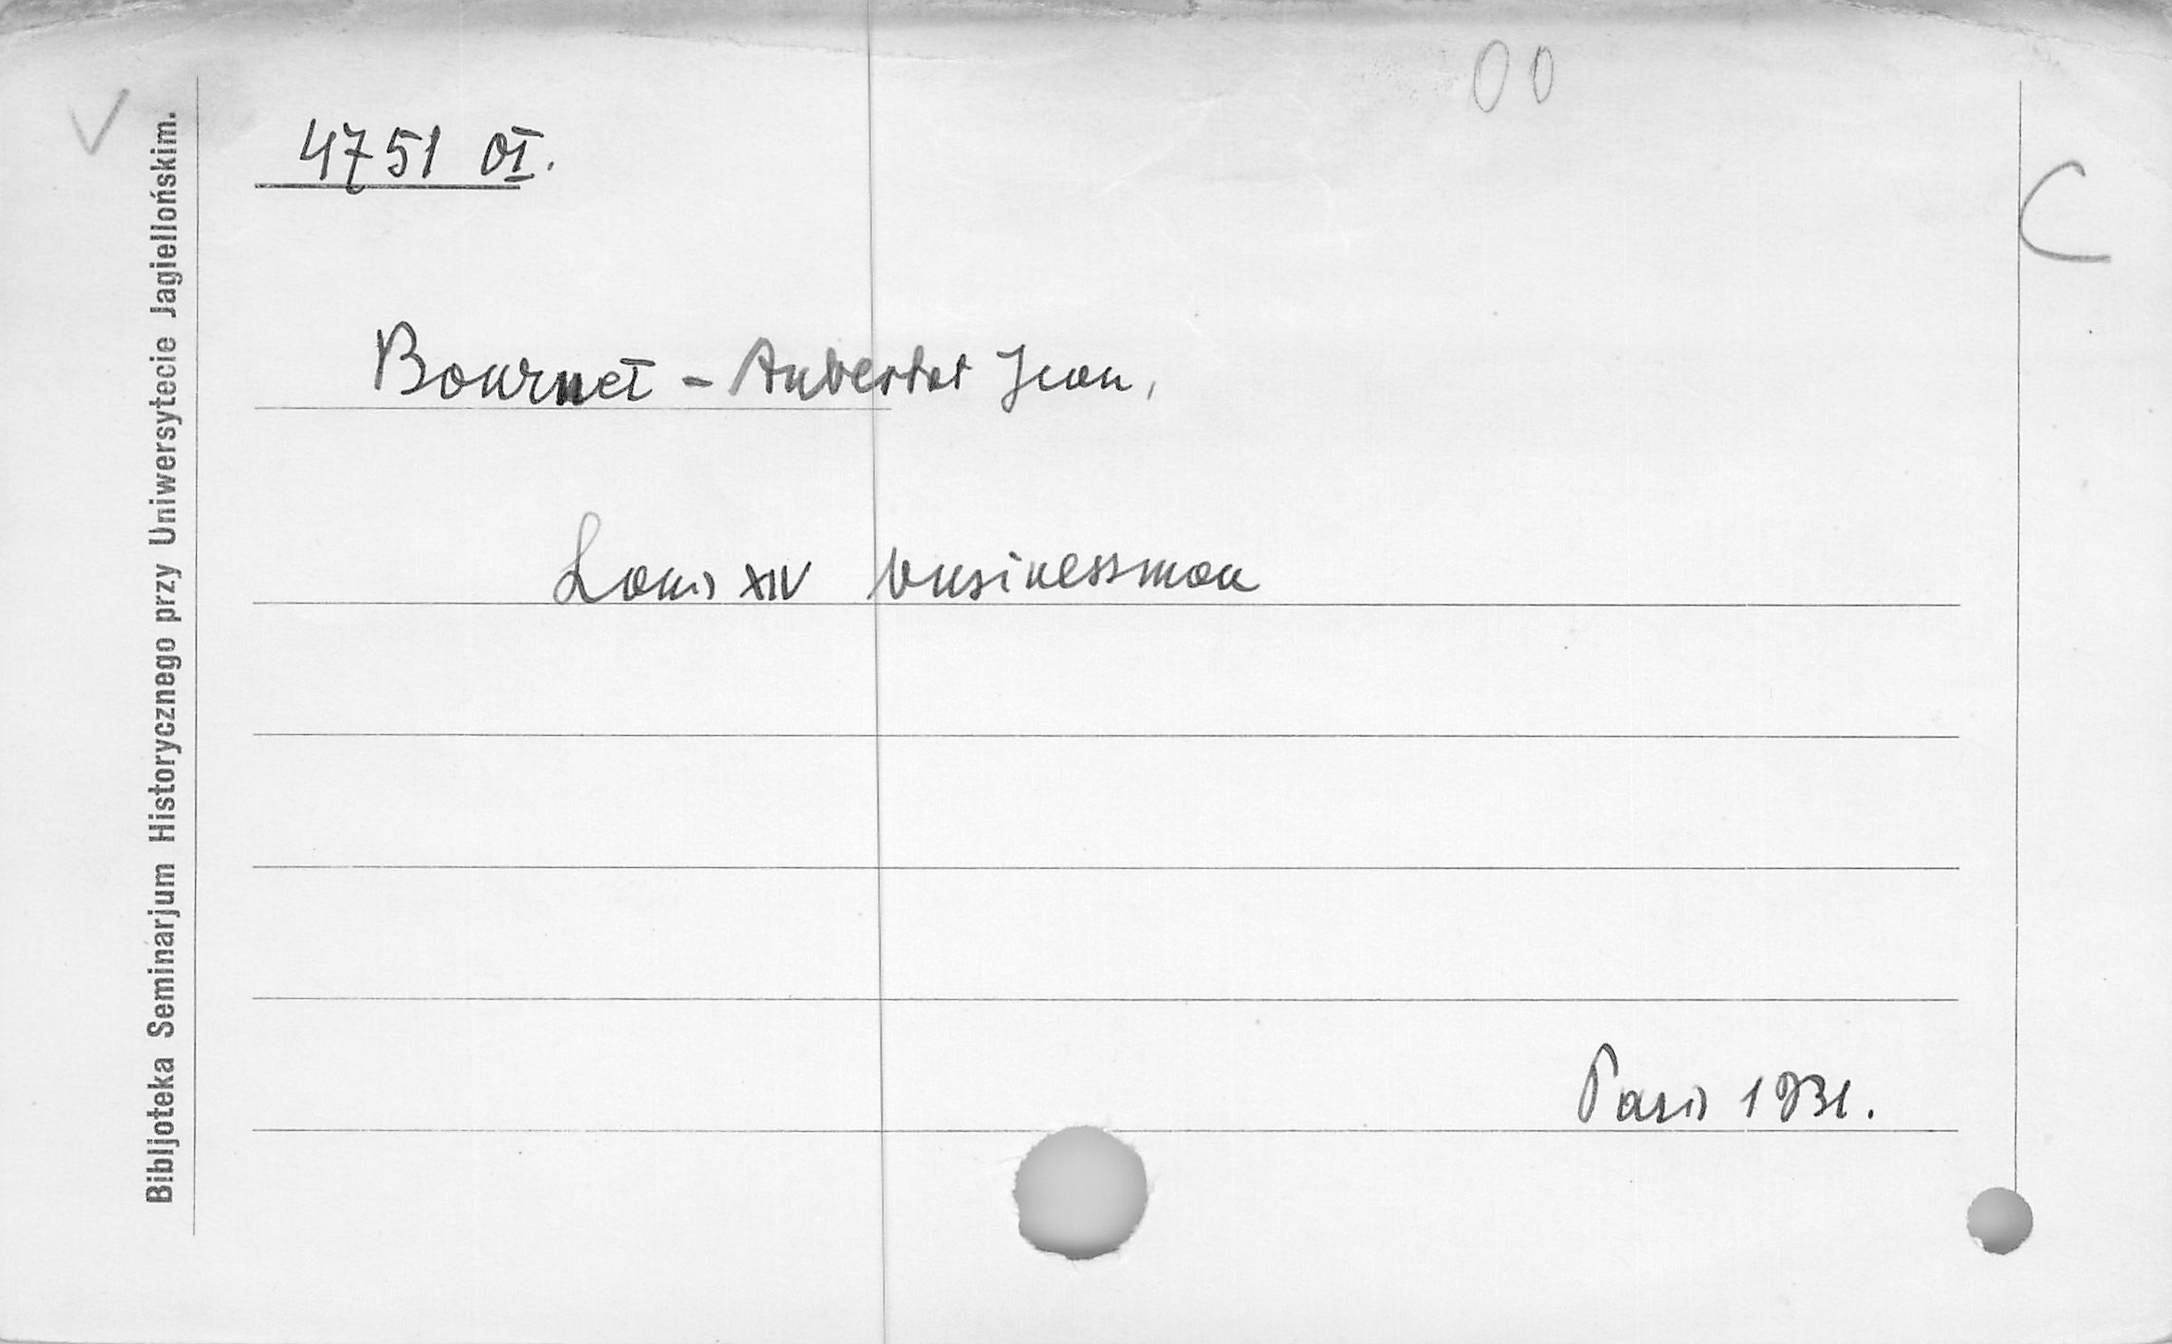 00
V
4751 OI.
C
Bournet - Aubertot Jean,
Louis XIV businessman
Paris 1931.
Bibljoteka Seminarjum Historycznego przy Uniwersytecie Jagiellońskim.